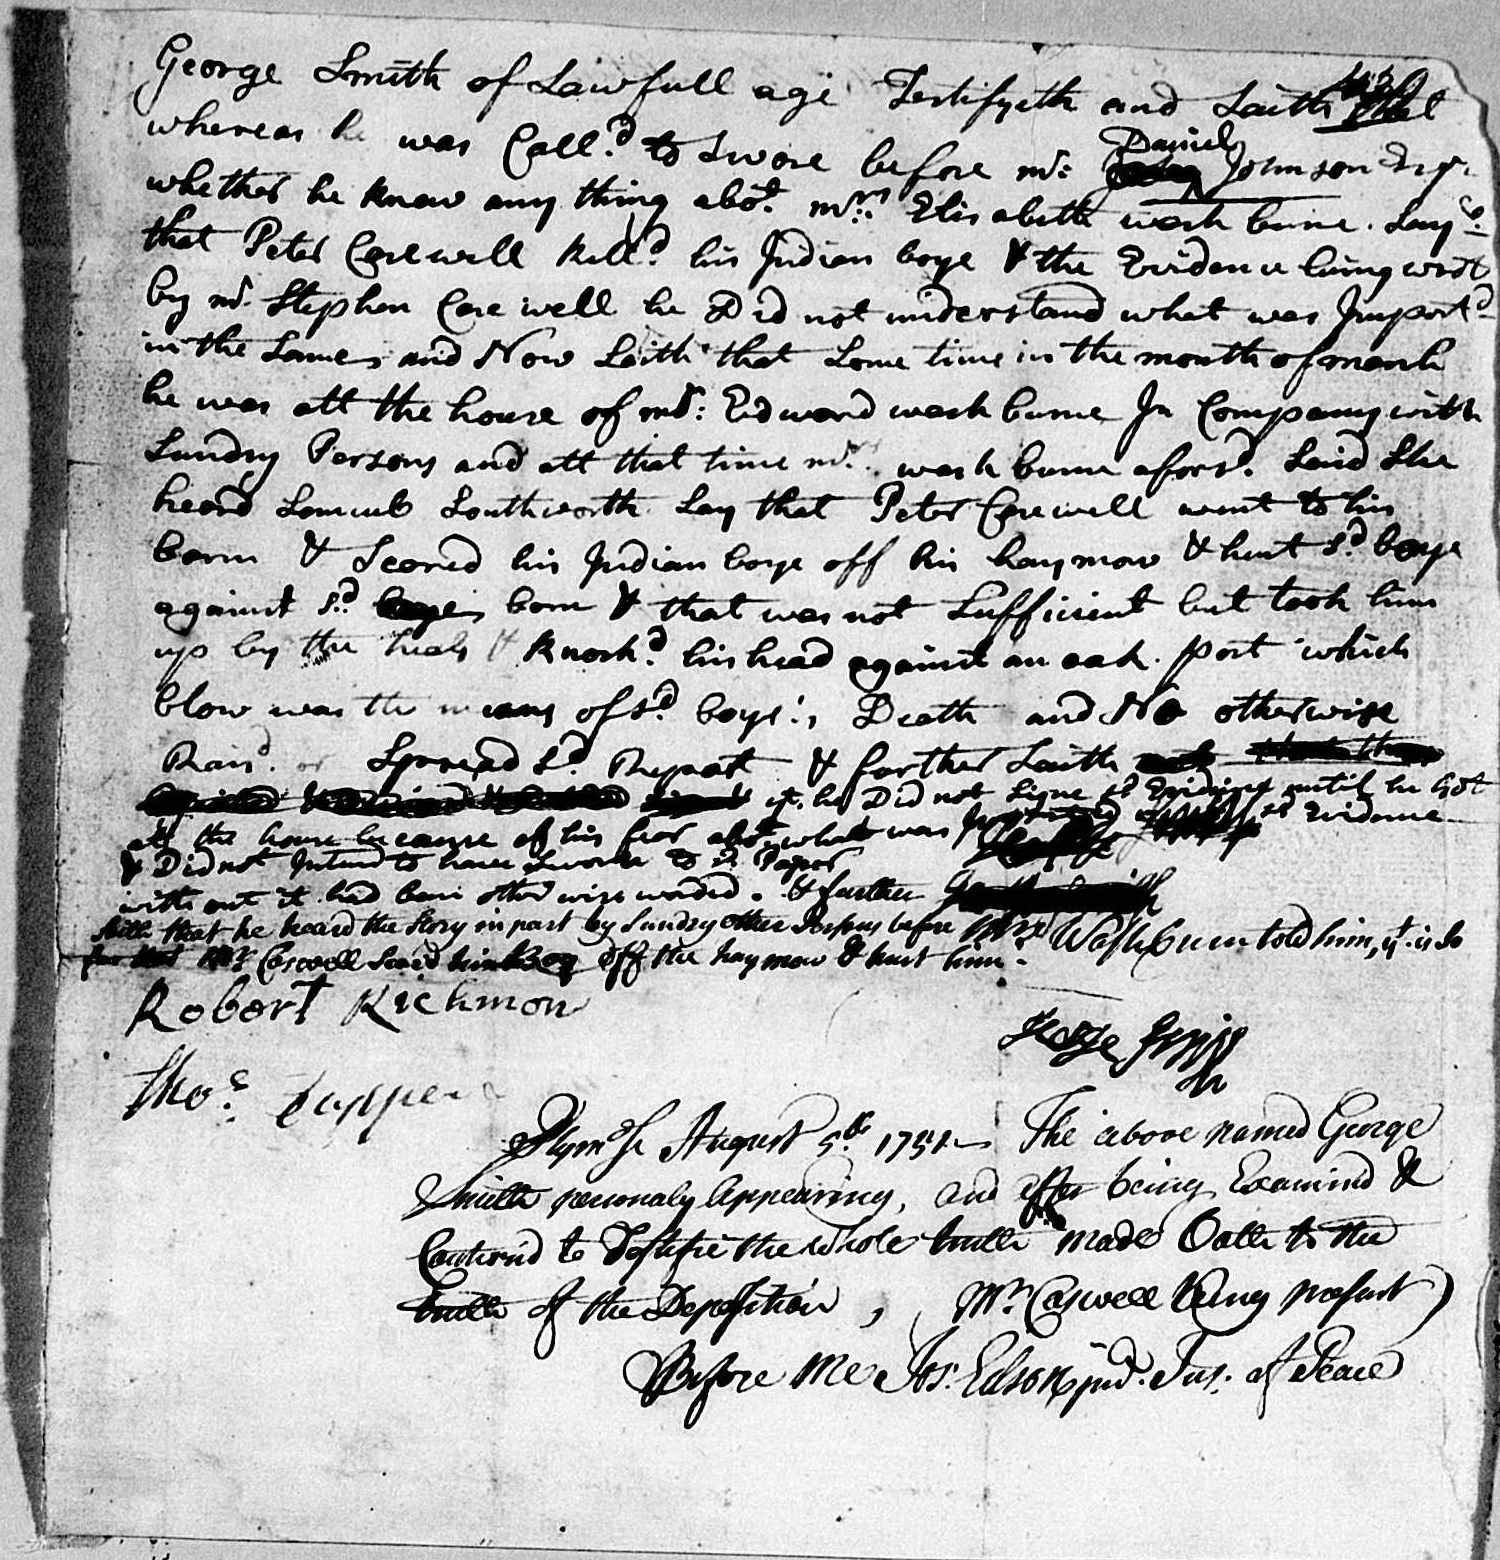 George Smith of Lawfull age Testifyeth and Saith that
whereas he was Call.d to Swore before mr: Daniel Johnson Esqr.
whether he knew any thing abot. mrs: Elisabeth wash burne. Sayg.
that Peter Carewell kill.d his Indian boye & the Evidence being wrot
by mr. Stephen Carewell he Did not understand what was Import.d
in the Same, and Now Saith that Some time in the month of march
he was att the house of mr: Edward wash burne In Company with
Sundry Persons and att that time mrs. wash burne afors.d Said She
heard Samuel Southworth Say that Peter Carewell went to his
barn & Scared his Indian boye off his haymow & hurt s.d boye
against s.d barn & that was not Sufficient but took him
up by the heals & knock.d his head against an oak. post which
blow was the means of s.d boye's Death and No otherwise
Rais.d or Spread s.d Report & farther Saith
yt. he Did not Signe sd Evidence until he Got
att the house because of his fear abot. what was sd Evidence
& Did not Intend to have Sworn to sd Paper
with out it had been other wise worded. & further
saith that he heard the Story in part by Sundry other Persons before Mrs Washburn told him, yt. is to
Mr Caswell Scared him off the hay mow & hurt him.
Robert Richmon
George Smith
Thos. Tappen
Plymo ss August 5th 1751 The above named George
Smith personaly Appearing, and after being Examined &
Cautiond to Testifie the whole truth made Oath to the
truth of the Deposition, Mr Caswell being present)
Before Me Jos. Edson jud. Jus. of Peace